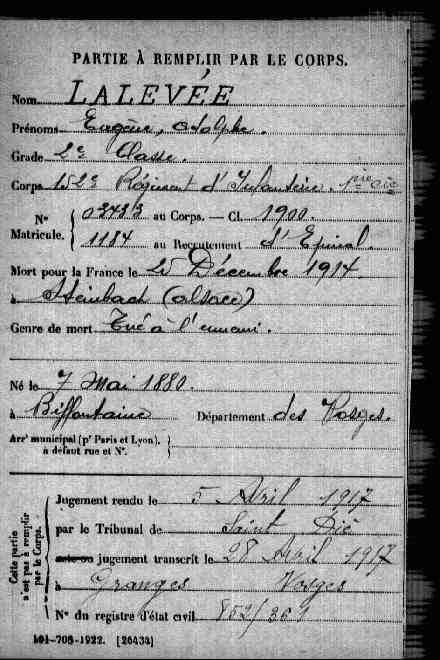 PARTIE À REMPLIR PAR LE CORPS.
Nom LALEVÉE
Prénoms Eugène, Adolphe.
Grade 2e Classe.
Corps 152e Régiment d'Infanterie. 1ère Cie
N° Matricule. { au Corps. — Cl. 1900.
1184 au Recrutement d'Epinal.
Mort pour la France le Décembre 1914.
à Steinbach (Alsace)
Genre de mort Tué à l'ennemi.
Né le 7 Mai 1880.
à Biffontaine Département des Vosges.
Arrt municipal (pr Paris et Lyon), à défaut rue et N°.
Cette partie n'est pas à remplir par le Corps.
Jugement rendu le 5 Avril 1917
par le Tribunal de Saint Dié
acte ou jugement transcrit le 28 Avril 1917
à Granges Vosges
N° du registre d'état civil
101-708-1922. [26434]